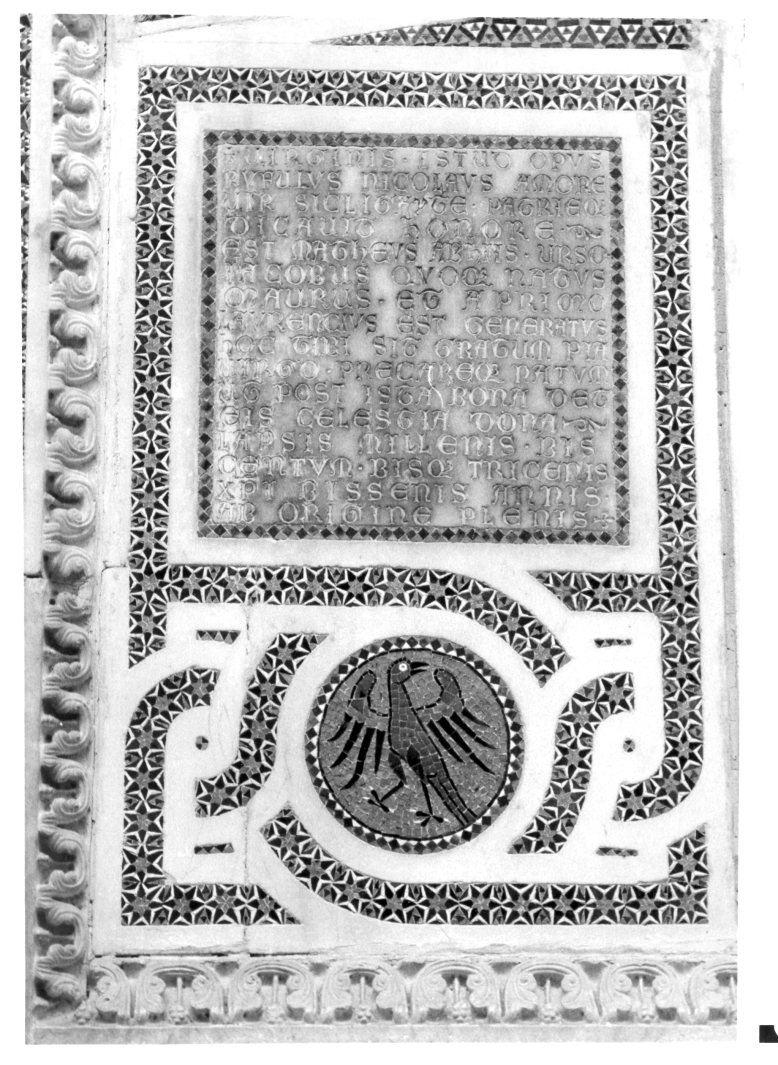 VIRGINIS · ISTUD OPVS
RVFULVS NICOLAVS AMORE
VIR SICLIGAYTE · PATRIEQ
DICAVIT HONORE ·
EST MATHEVS AB HIIS · URSO ·
IACOBUS QVOQ NATVS
MAURUS · ET A PRIMO
LAVRENCIVS EST GENERATVS
HOC TIBI SIT GRATUM PIA
VIRGO · PRECAREQ NATVM
UT POST ISTA BONA DET
EIS CELESTIA DONA
LAPSIS MILLENIS · BIS
CENTVM · BISQ TRICENIS
XPI BISSENIS ANNIS ·
AB ORIGINE PLENIS